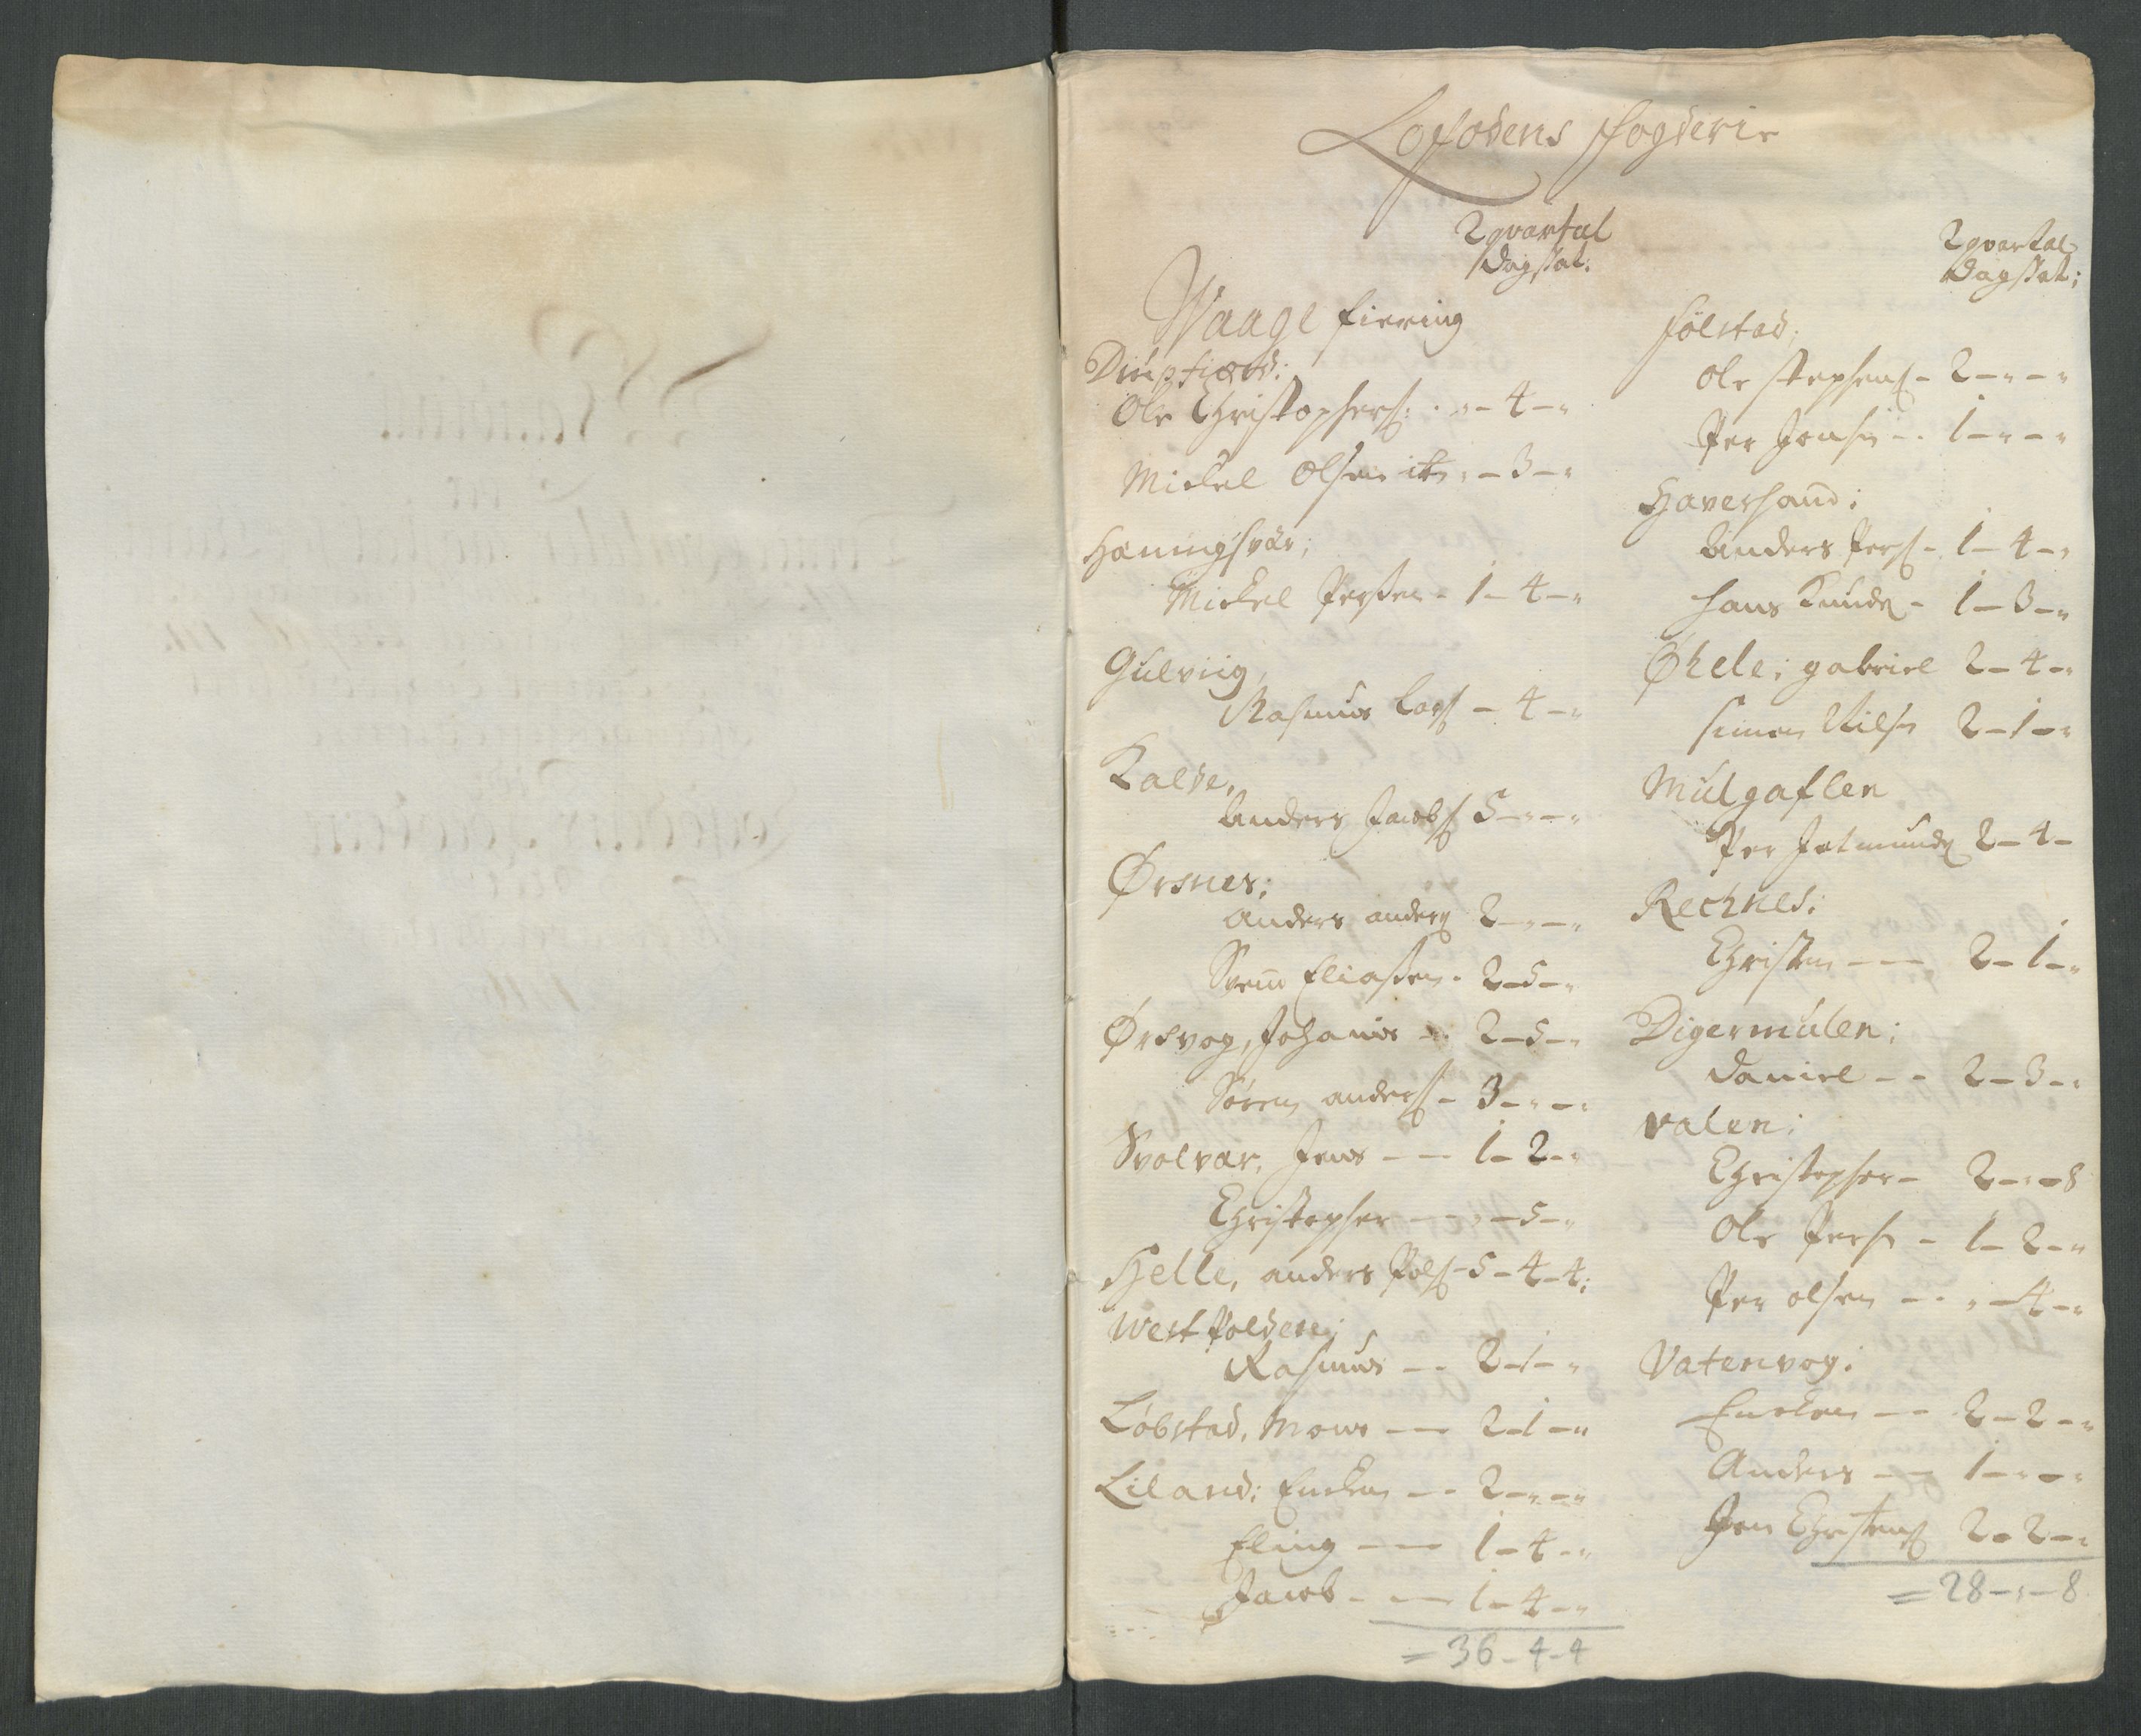 Lofodens fogderie
2 qvartal
dagskat:
Waage fiering
Diupfiord:
Ole Christophers: " - 4 - "
Mickel Olsen " - 3 - "
Haningsvær;
Mickel Persen - 1 - 4 - "
Gulviig,
Rasmus Lars - 4 - "
Kalde,
Anders Jacobs 5 - " - "
Ørsnes;
Anders anders 2 - " - "
Svend Eliasen - 2 - 5 - "
Ørsvog, Johanis 2 - 5 - "
Sören anders - 3 - " - "
Svolvær, Jens - 1 - 2 - "
Christopher - " - 5 - "
Hielle, anders Pols - 5 - 4 - 4:
West Polden;
Rasmus - 2 - 1 - "
Löbstad, Mons - 2 - 1 - "
Liland: Encken - 2 - " - "
Elling - 1 - 4 - "
Jacob - 1 - 4 - "
= 36 - 4 - 4
2 qvartal
dagskat;
fölstad;
Ole Stephens - 2 - " - "
Per Jonsen - 1 - " - "
Haversand;
Anders Pers - 1 - 4 - "
Hans Knuds - 1 - 3 - "
gabriel 2 - 4 - "
Simen Nilsen 2 - 1 - "
Mulgaflen
Per Jetmunds 2 - 4 -
Rechnes:
Christen - 2 - 1 - "
Digermulen;
Daniel - 2 - 3 - "
valen;
Christopher - 2 - " - 8
Ole Persen - 1 - 2 - "
Per olsen - " - 4 - "
Vatenvog;
Encken - 2 - 2 - "
Anders - 1 - " - "
Jon Christens 2 - 2 - "
= 28 - " - 8